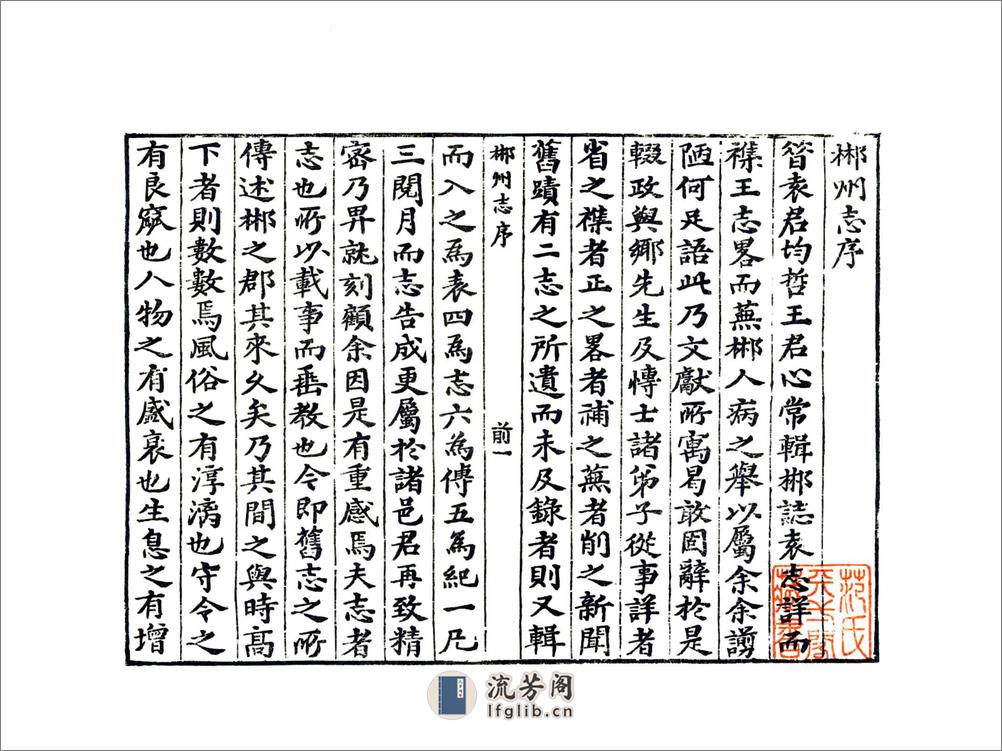 郴州志序
昝袁君均哲王君心常輯郴誌袁志詳而
襍王志畧而蕪郴人病之舉以屬余余謭
陋何足語此乃文獻所寓曷敢固辭於是
輟政與鄉先生及愽士諸弟子從事詳者
省之襍者正之畧者補之蕪者削之新聞
舊蹟有二志之所遺而未及錄者則又輯
郴州志序
前一
而入之為表四為志六為傳五為紀一凡
三閱月而志告成更屬於諸邑君再致精
審乃畀就刻顧余因是有重感焉夫志者
志也所以載事而垂教也今即舊志之所
傳述郴之郡其來久矣乃其間之與時高
下者則數數焉風俗之有淳漓也守令之
有良窳也人物之有盛衰也生息之有增
范氏天一閣藏書
流芳阁
lfglib.cn